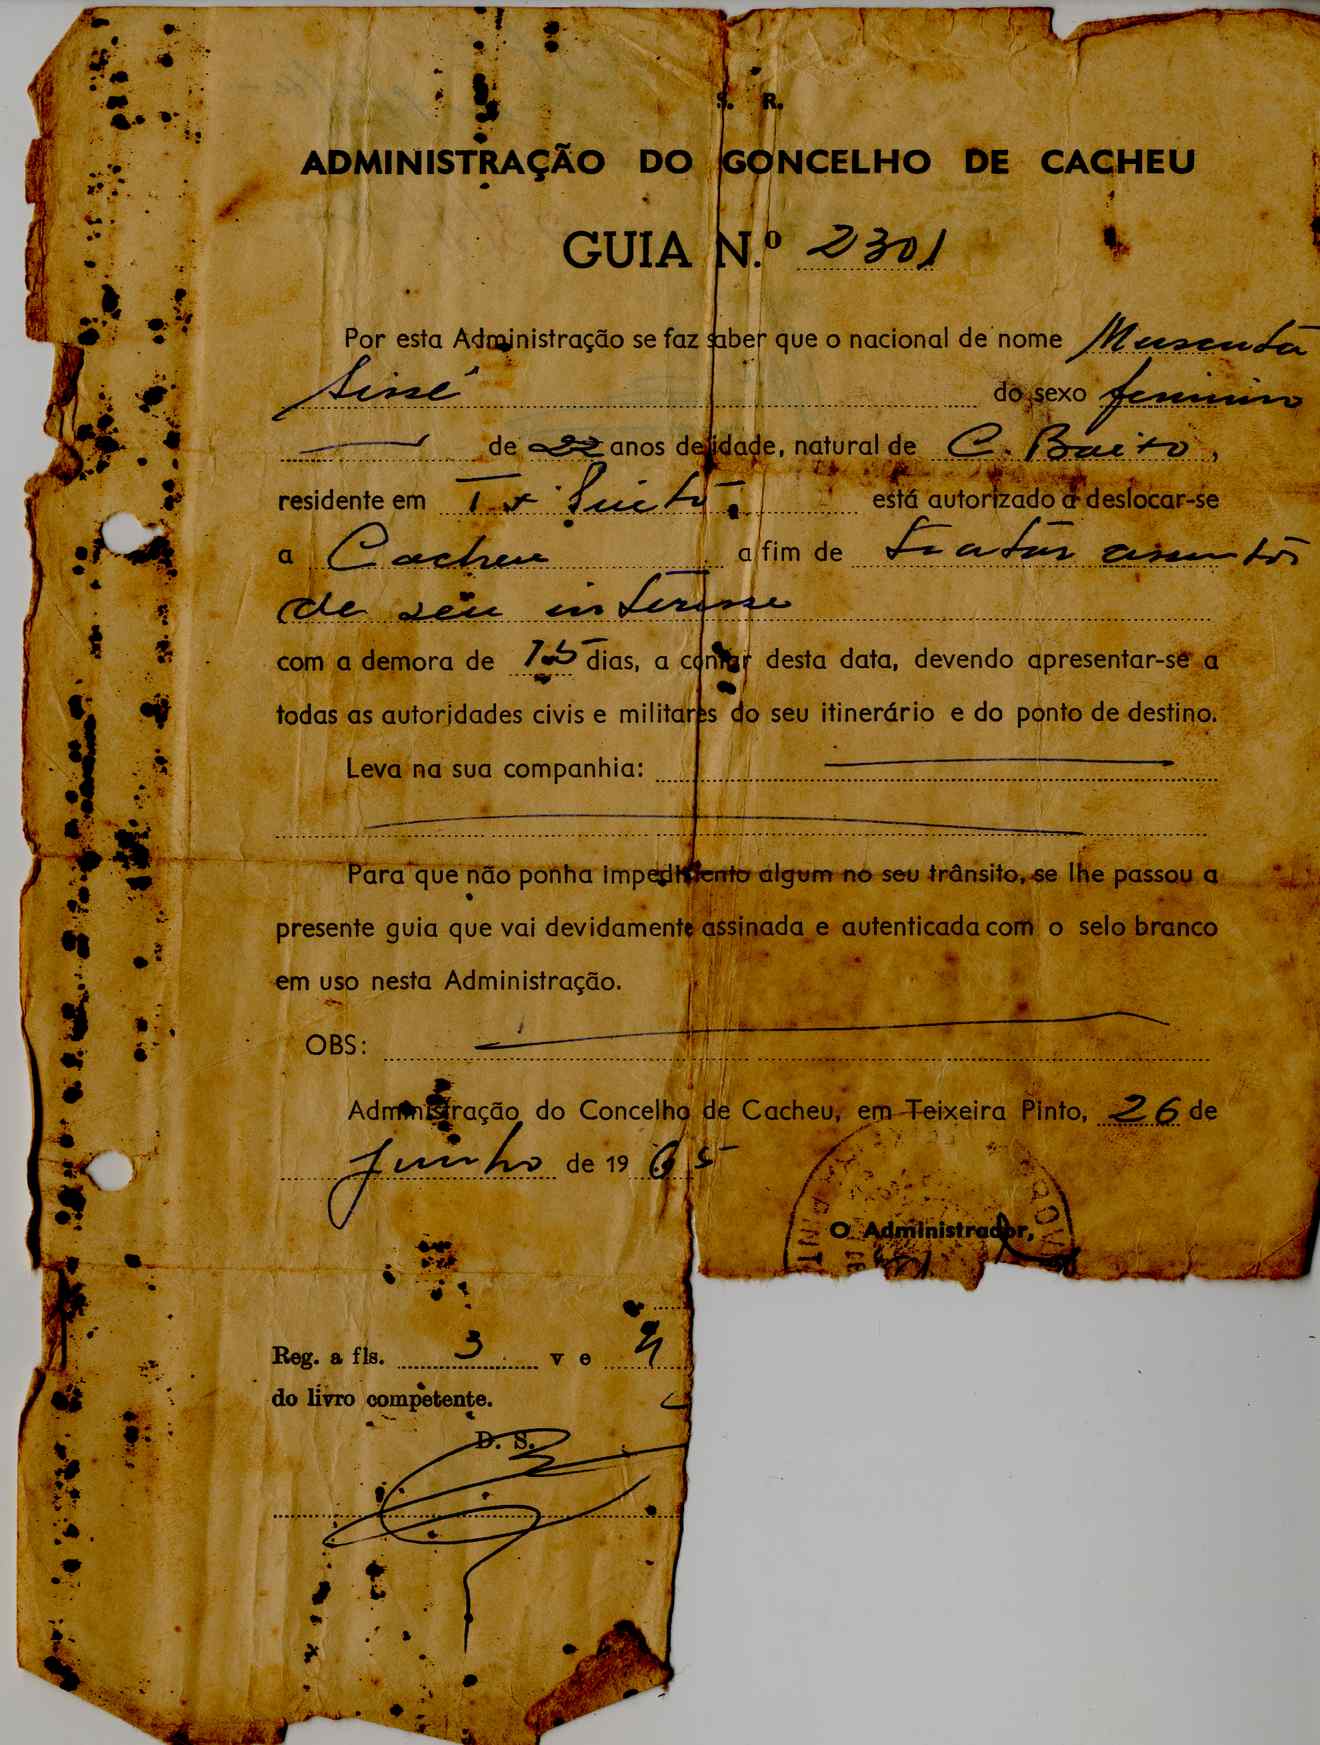 S. R.
ADMINISTRAÇÃO DO CONCELHO DE CACHEU
GUIA N.º 2301
Por esta Administração se faz saber que o nacional de nome
Sissé do sexo feminino
de 22 anos de idade, natural de C. Baito,
residente em Tx Pinto, está autorizado a deslocar-se
a Cacheu a fim de tratar assuntos
de seu interesse
com a demora de 15 dias, a contar desta data, devendo apresentar-se a
todas as autoridades civis e militares do seu itinerário e do ponto de destino.
Leva na sua companhia:
Para que não ponha impedimento algum no seu trânsito, se lhe passou a
presente guia que vai devidamente assinada e autenticada com o selo branco
em uso nesta Administração.
OBS:
Administração do Concelho de Cacheu, em Teixeira Pinto, 26 de
Junho de 1965
O Administrador,
Reg. a fls. 3 v e 4
do livro competente.
D. S.